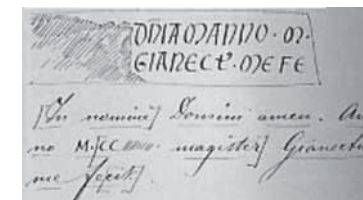 DÑIAMANNO·M·
GIANECT·MEFE
[In nomini] Domini amen. An
no M.[CC magister] Gianectu
me fecit].